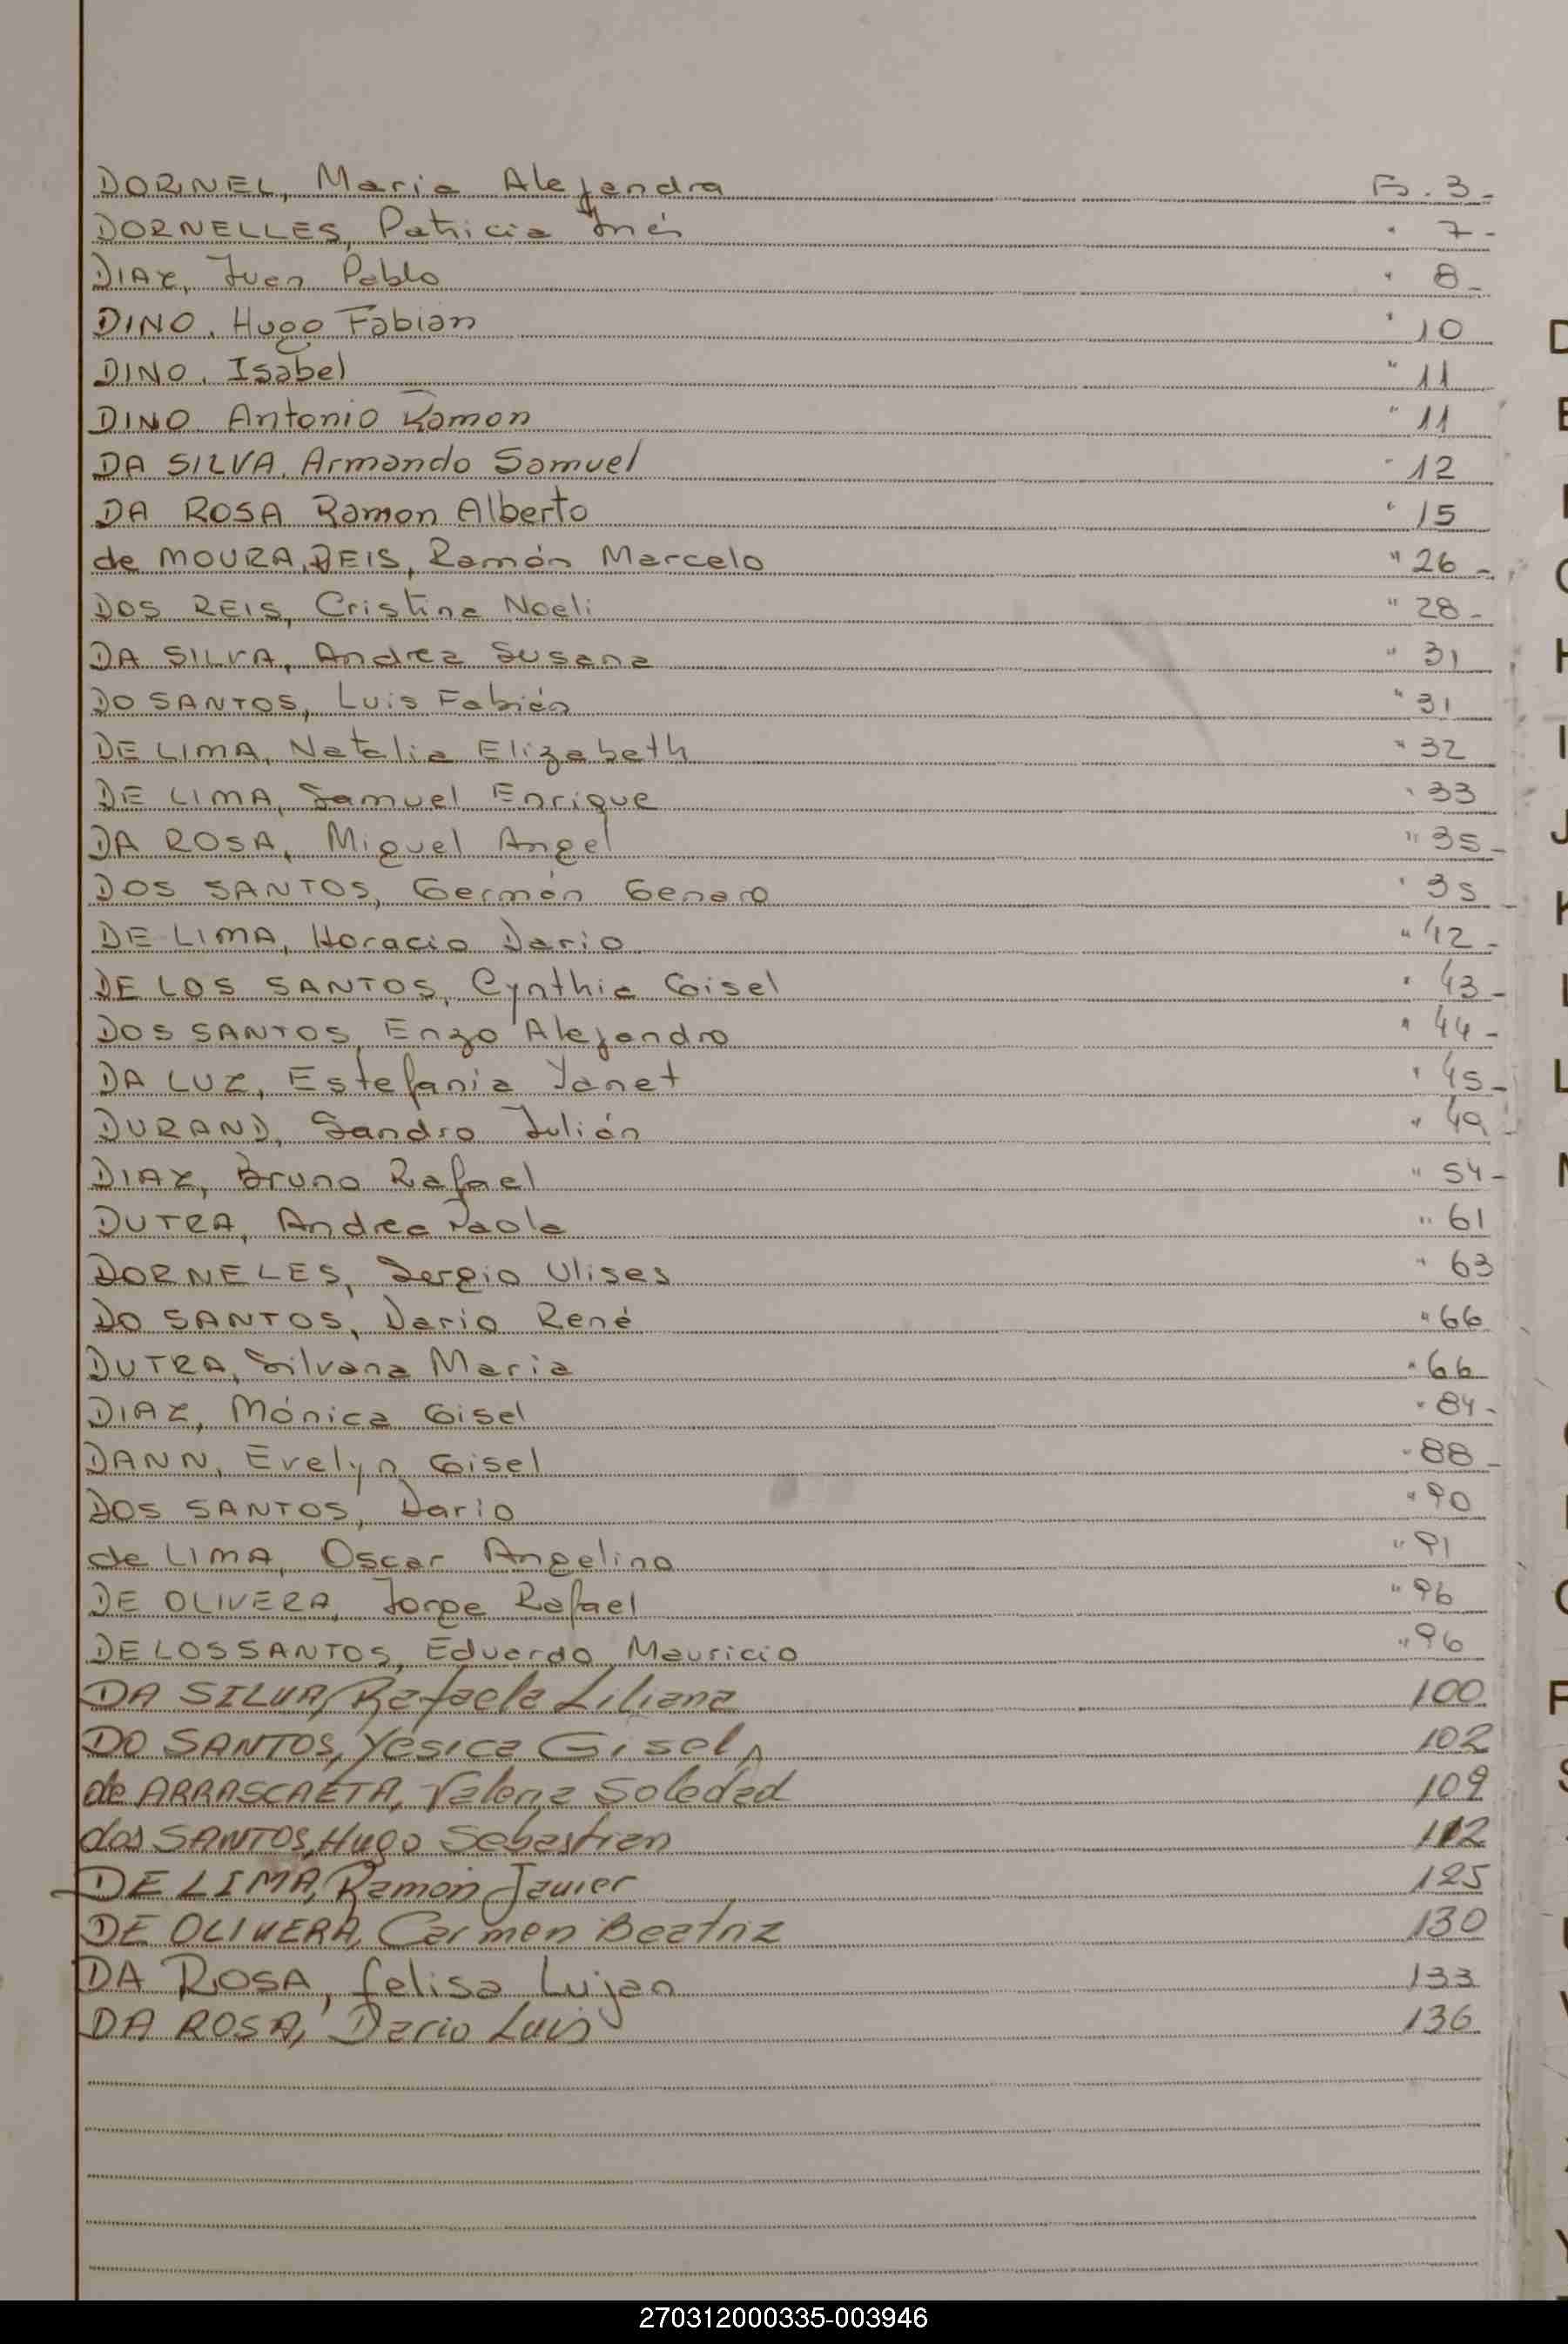 DORNEL, Maria Alejandra Fs. 3-
DORNELLES, Patricia Inés " 7-
DIAZ, Juan Pablo " 8-
DINO, Hugo Fabian " 10
DINO, Isabel " 11
DINO, Antonio Ramon " 11
DA SILVA, Armando Samuel " 12
DA ROSA Ramon Alberto " 15
de MOURA REIS, Ramón Marcelo " 26-
DOS REIS, Cristina Noeli " 28-
DA SILVA, Andrea Susana " 31
DO SANTOS, Luis Fabián " 31
DE LIMA, Natalia Elizabeth " 32
DE LIMA, Samuel Enrique " 33
DA ROSA, Miguel Angel " 35-
DOS SANTOS, Germán Genaro " 35
DE LIMA, Horacio Dario " 42-
DE LOS SANTOS, Cynthia Gisel " 43-
DOS SANTOS, Enzo Alejandro " 44-
DA LUZ, Estefania Janet " 45-
DURAND, Sandro Julián " 49
DIAZ, Bruno Rafael " 54-
DUTRA, Andrea Paola " 61
DORNELES, Sergio Ulises " 63
DO SANTOS, Dario René " 66
DUTRA, Silvana Maria " 66
DIAZ, Mónica Gisel " 84-
DANN, Evelyn Gisel " 88-
DOS SANTOS, Dario " 90
de LIMA, Oscar Angelino " 91
DE OLIVERA, Jorge Rafael " 96
DE LOS SANTOS, Eduardo Mauricio " 96
DA SILVA, Rafaela Liliana 100
DO SANTOS, Yesica Gisela 102
de ARRASCAETA, Valeria Soledad 109
dos SANTOS, Hugo Sebastian 112
DE LIMA, Ramon Javier 125
DE OLIVERA, Carmen Beatriz 130
DA ROSA, felisa Lujan 133
DA ROSA, Dario Luis 136
270312000335-003946